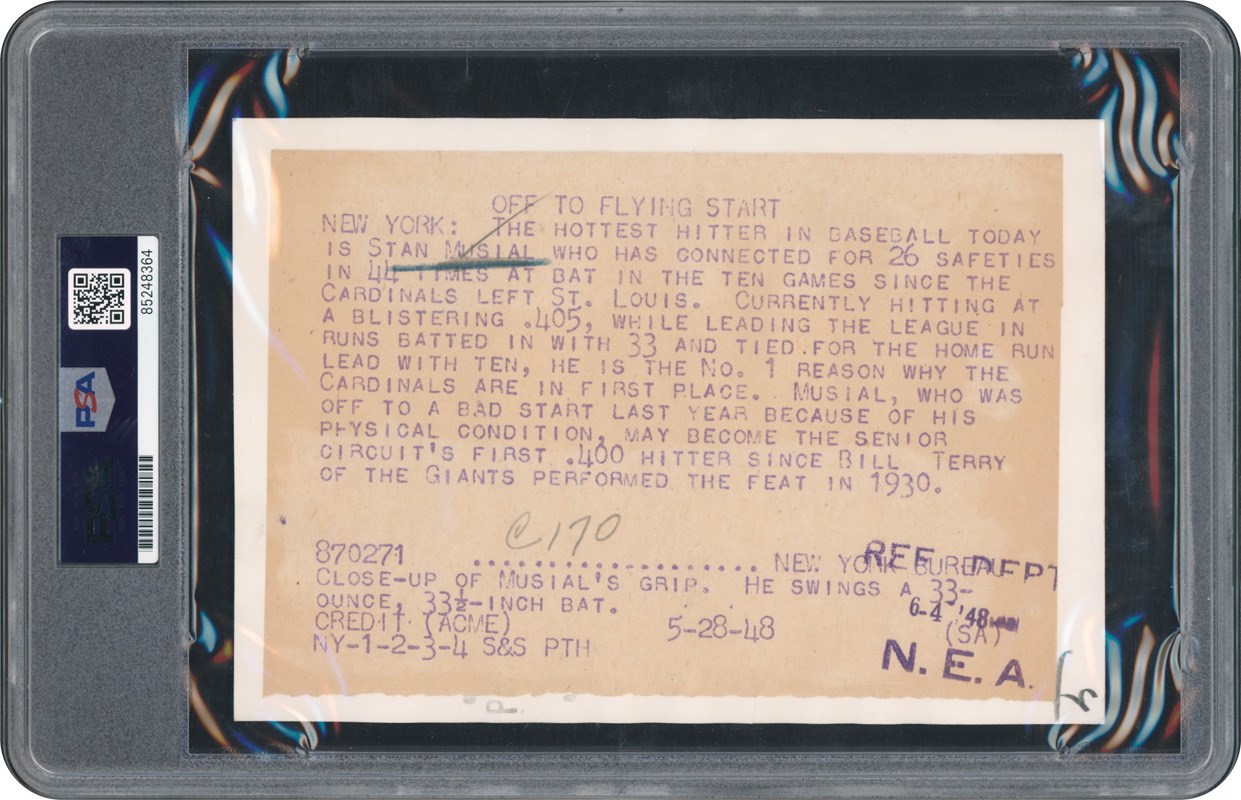 OFF TO FLYING START
NEW YORK: THE HOTTEST HITTER IN BASEBALL TODAY
IS STAN MUSIAL WHO HAS CONNECTED FOR 26 SAFETIES
IN 44 TIMES AT BAT IN THE TEN GAMES SINCE THE
CARDINALS LEFT ST. LOUIS. CURRENTLY HITTING AT
A BLISTERING .405, WHILE LEADING THE LEAGUE IN
RUNS BATTED IN WITH 33 AND TIED.FOR THE HOME RUN
LEAD WITH TEN, HE IS THE NO. 1 REASON WHY THE
CARDINALS ARE IN FIRST PLACE. MUSIAL, WHO WAS
OFF TO A BAD START LAST YEAR BECAUSE OF HIS
PHYSICAL CONDITION, MAY BECOME THE SENIOR
CIRCUIT'S FIRST .400 HITTER SINCE BILL TERRY
OF THE GIANTS PERFORMED THE FEAT IN 1930.
C170
870271 .................... NEW YORK BUREAU
REF. DEPT
CLOSE-UP OF MUSIAL'S GRIP. HE SWINGS A 33-
OUNCE, 33½-INCH BAT.
6-4 '48
CREDIT (ACME) 5-28-48 (SA)
NY-1-2-3-4 S&S PTH
N. E. A.
85248364
PSA